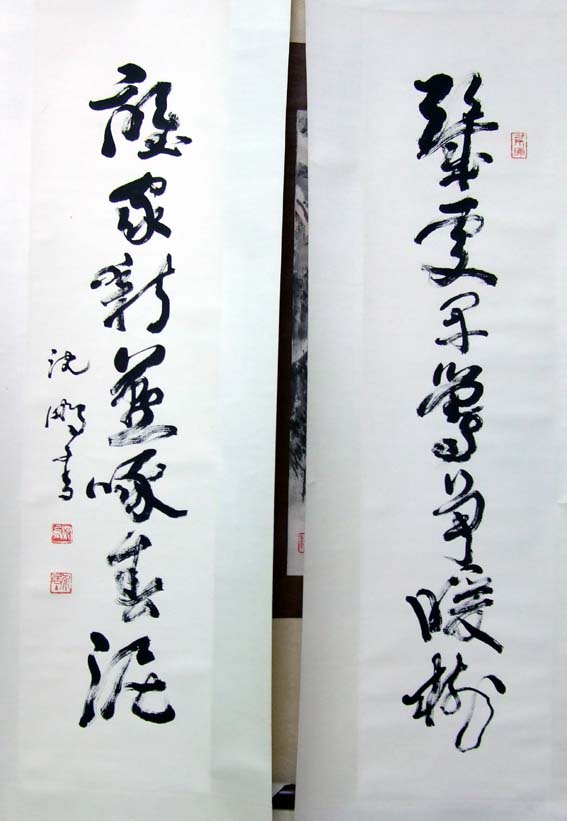 几處早鶯爭暖樹
誰家新燕啄春泥
沈鵬書